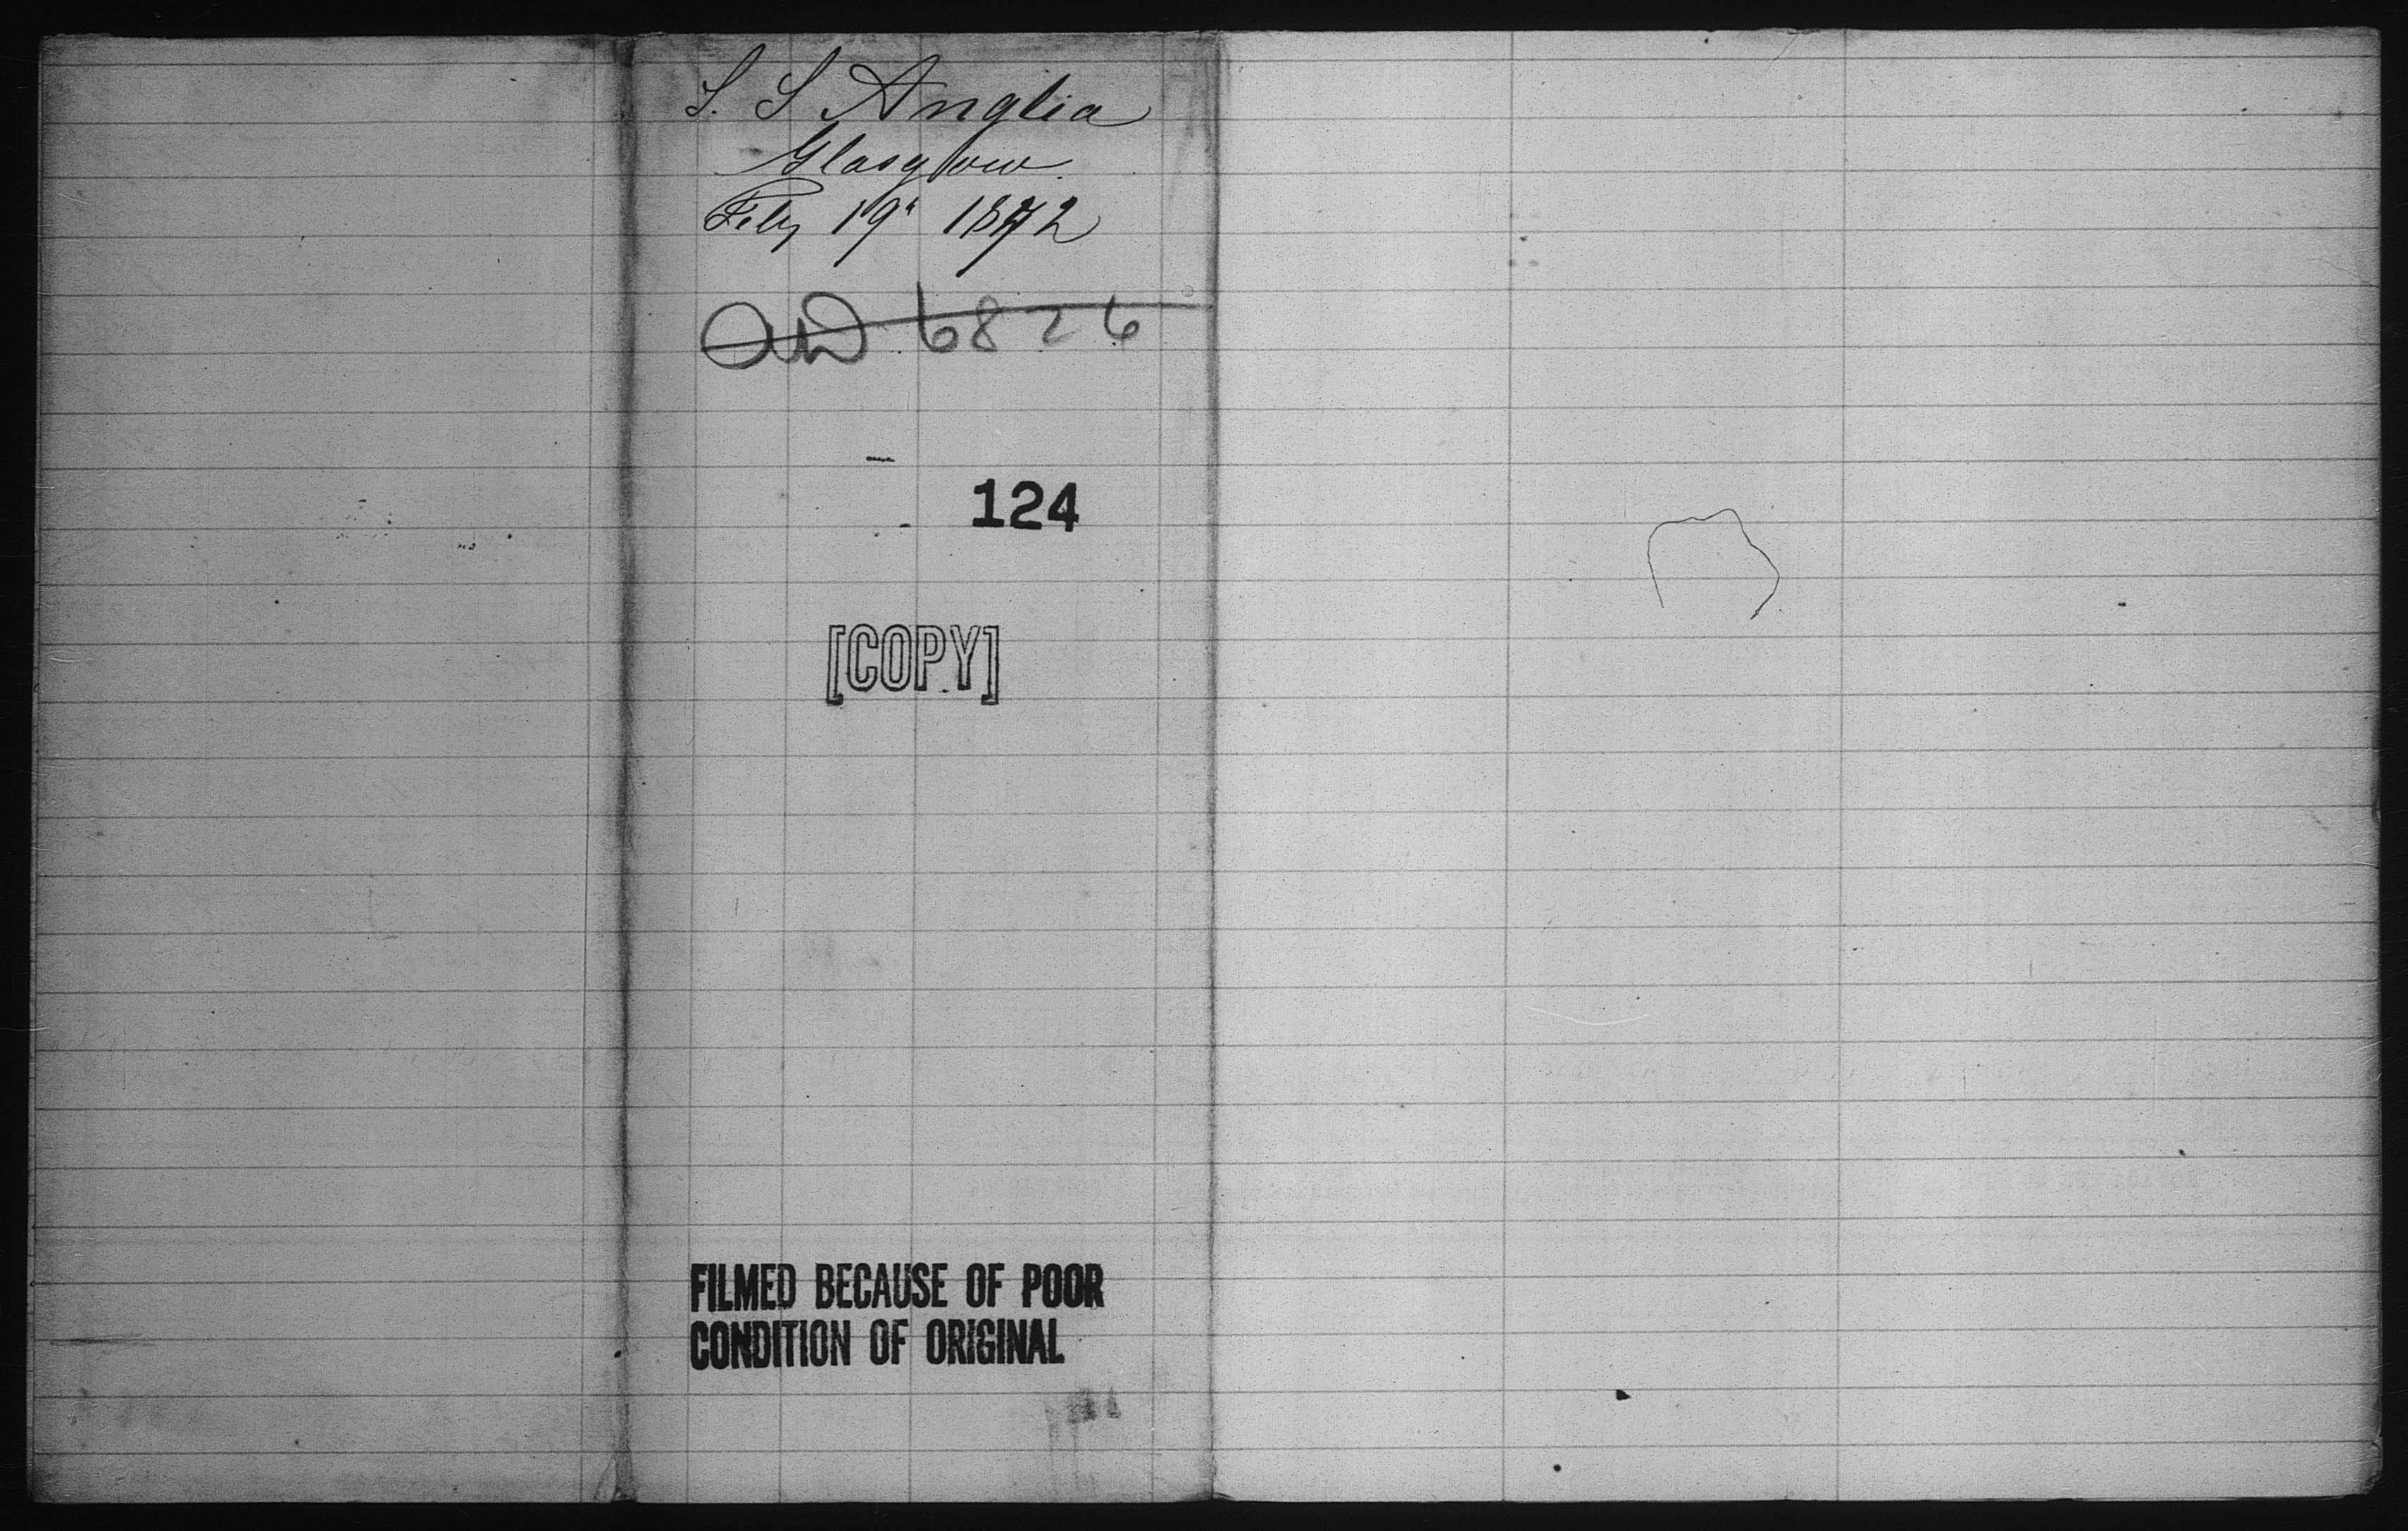 S. S Anglia
Glasgow.
Feby 19" 1872
6826
124
[COPY]
FILMED BECAUSE OF POOR
CONDITION OF ORIGINAL